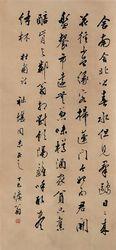 舍南舍北皆春水但見群鷗日日來
花徑不曾緣客掃蓬門今始為君開
盤餐市遠無兼味樽酒家貧只舊
醅肯與鄰翁相對飲隔籬呼取盡
餘杯 杜甫詩 同志